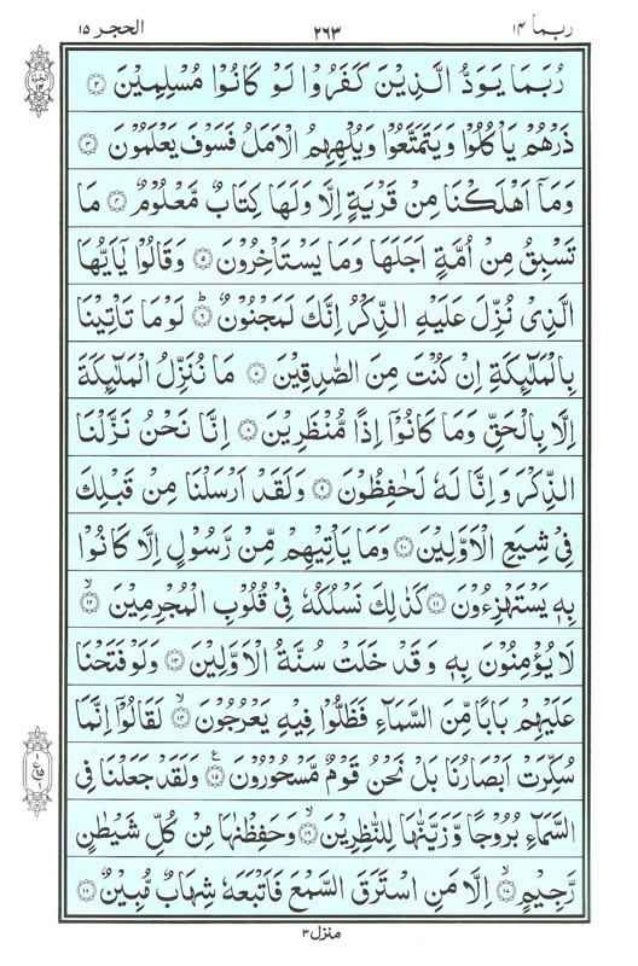 ربما ١٤ ٢٦٣ الحجر ١٥
رُبَمَا يَوَدُّ الَّذِيْنَ كَفَرُوْا لَوْ كَانُوْا مُسْلِمِيْنَ ۝٢
ذَرْهُمْ يَاْكُلُوْا وَيَتَمَتَّعُوْا وَيُلْهِهِمُ الْاَمَلُ فَسَوْفَ يَعْلَمُوْنَ ۝٣
وَمَآ اَهْلَكْنَا مِنْ قَرْيَةٍ اِلَّا وَلَهَا كِتَابٌ مَّعْلُوْمٌ ۝٤ مَا
تَسْبِقُ مِنْ اُمَّةٍ اَجَلَهَا وَمَا يَسْتَاْخِرُوْنَ ۝٥ وَقَالُوْا يٰٓاَيُّهَا
الَّذِيْ نُزِّلَ عَلَيْهِ الذِّكْرُ اِنَّكَ لَمَجْنُوْنٌ ۝٦ؕ لَوْ مَا تَاْتِيْنَا
بِالْمَلٰٓئِكَةِ اِنْ كُنْتَ مِنَ الصّٰدِقِيْنَ ۝٧ مَا نُنَزِّلُ الْمَلٰٓئِكَةَ
اِلَّا بِالْحَقِّ وَمَا كَانُوْٓا اِذًا مُّنْظَرِيْنَ ۝٨ اِنَّا نَحْنُ نَزَّلْنَا
الذِّكْرَ وَاِنَّا لَهٗ لَحٰفِظُوْنَ ۝٩ وَلَقَدْ اَرْسَلْنَا مِنْ قَبْلِكَ
فِيْ شِيَعِ الْاَوَّلِيْنَ ۝١٠ وَمَا يَاْتِيْهِمْ مِّنْ رَّسُوْلٍ اِلَّا كَانُوْا
بِهٖ يَسْتَهْزِءُوْنَ ۝١١ كَذٰلِكَ نَسْلُكُهٗ فِيْ قُلُوْبِ الْمُجْرِمِيْنَ ۝١٢ۙ
لَا يُؤْمِنُوْنَ بِهٖ وَقَدْ خَلَتْ سُنَّةُ الْاَوَّلِيْنَ ۝١٣ وَلَوْ فَتَحْنَا
عَلَيْهِمْ بَابًا مِّنَ السَّمَآءِ فَظَلُّوْا فِيْهِ يَعْرُجُوْنَ ۝١٤ۙ لَقَالُوْٓا اِنَّمَا
سُكِّرَتْ اَبْصَارُنَا بَلْ نَحْنُ قَوْمٌ مَّسْحُوْرُوْنَ ۝١٥ع وَلَقَدْ جَعَلْنَا فِي
السَّمَآءِ بُرُوْجًا وَّزَيَّنّٰهَا لِلنّٰظِرِيْنَ ۝١٦ۙ وَحَفِظْنٰهَا مِنْ كُلِّ شَيْطٰنٍ
رَّجِيْمٍ ۝١٧ۙ اِلَّا مَنِ اسْتَرَقَ السَّمْعَ فَاَتْبَعَهٗ شِهَابٌ مُّبِيْنٌ ۝١٨
منزل ٣